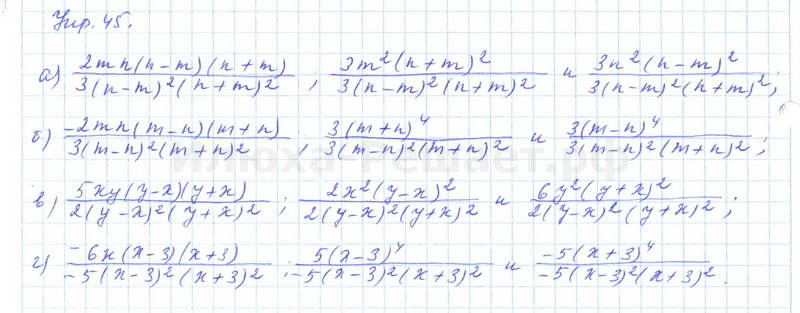 Упр. 45.
а) \frac{2mn(n-m)(n+m)}{3(n-m)^2(n+m)^2} ; \frac{3m^2(n+m)^2}{3(n-m)^2(n+m)^2} и \frac{3n^2(n-m)^2}{3(n-m)^2(n+m)^2};
б) \frac{-2mn(m-n)(m+n)}{3(m-n)^2(m+n)^2} , \frac{3(m+n)^4}{3(m-n)^2(m+n)^2} и \frac{3(m-n)^4}{3(m-n)^2(m+n)^2};
в) \frac{5xy(y-x)(y+x)}{2(y-x)^2(y+x)^2} ; \frac{2x^2(y-x)^2}{2(y-x)^2(y+x)^2} и \frac{6y^2(y+x)^2}{2(y-x)^2(y+x)^2};
г) \frac{-6x(x-3)(x+3)}{-5(x-3)^2(x+3)^2} ; \frac{5(x-3)^4}{-5(x-3)^2(x+3)^2} и \frac{-5(x+3)^4}{-5(x-3)^2(x+3)^2}.